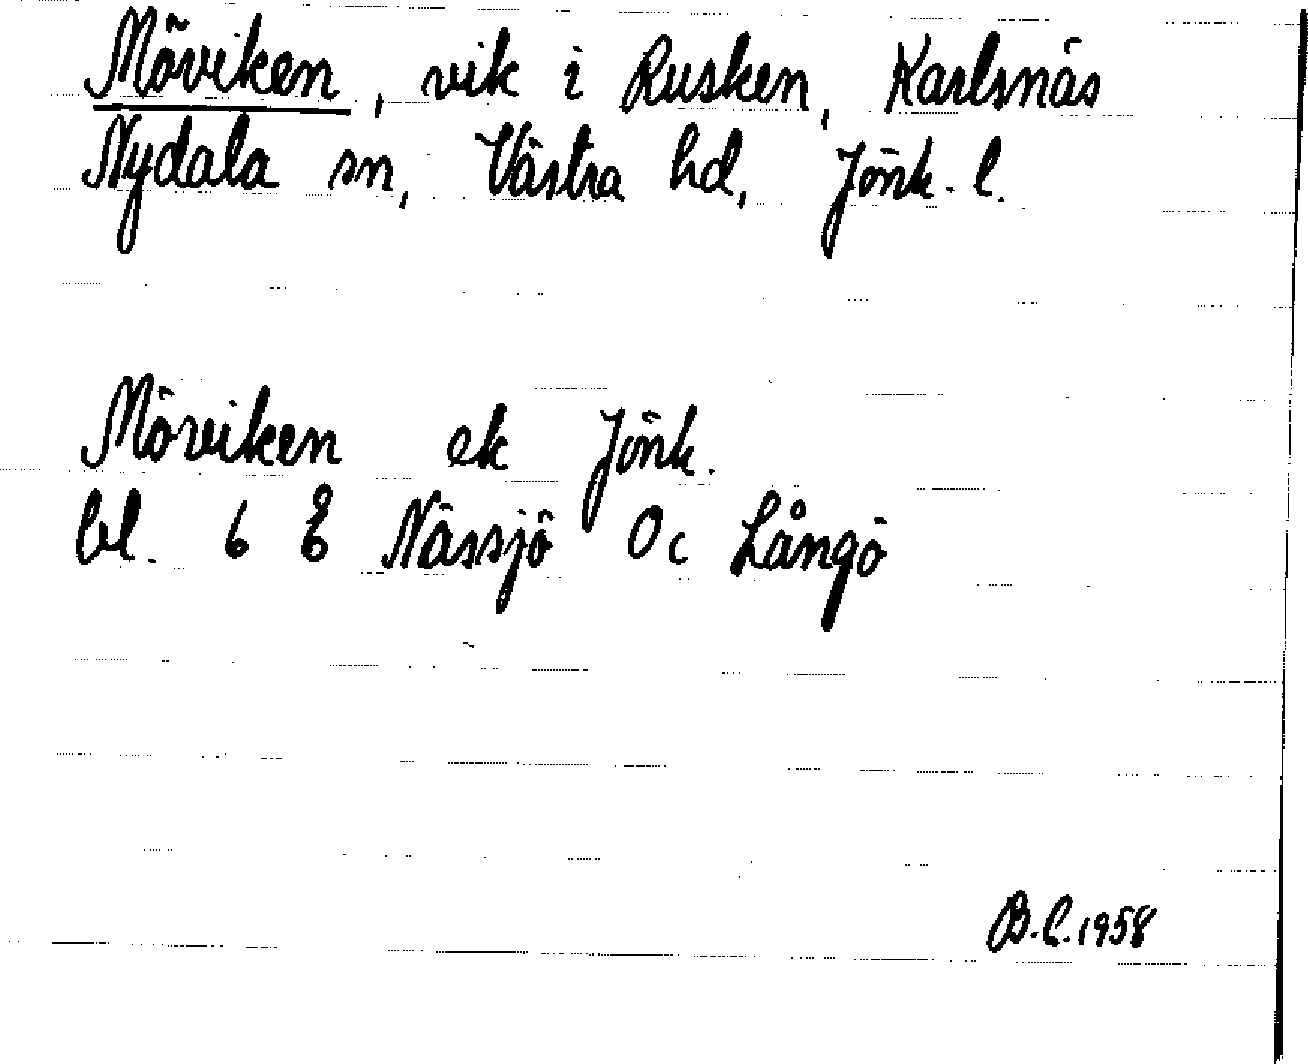 Möviken, vik i Rusken, Karlsnäs
Nydala sn, Västra hd, Jönk. l.
Möviken ek Jönk.
bl. 6 E Nässjö 0c Långö
B.L. 1958